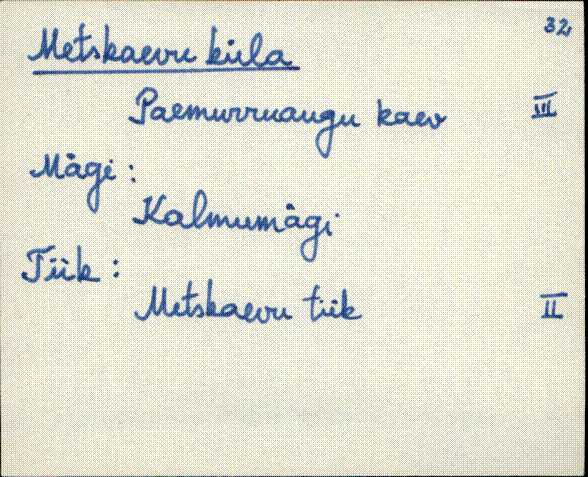 32
Metskaevu küla
Paemurruaugu kaev III
Mägi:
Kalmumägi
Tiik:
Metskaevu tiik II